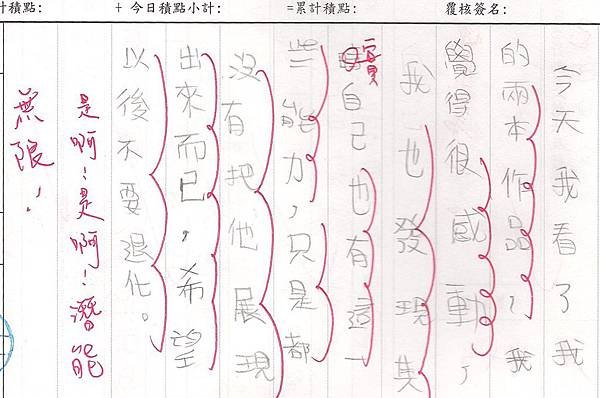 計積點: + 今日積點小計: =累計積點: 覆核簽名:
今天我看了我
的兩本作品，我
覺得很感動，
我也發現其
實自己也有這一
些能力，只是都
沒有把他展現
出來而已，希望
以後不要退化。
是啊！是啊！潛能
無限！